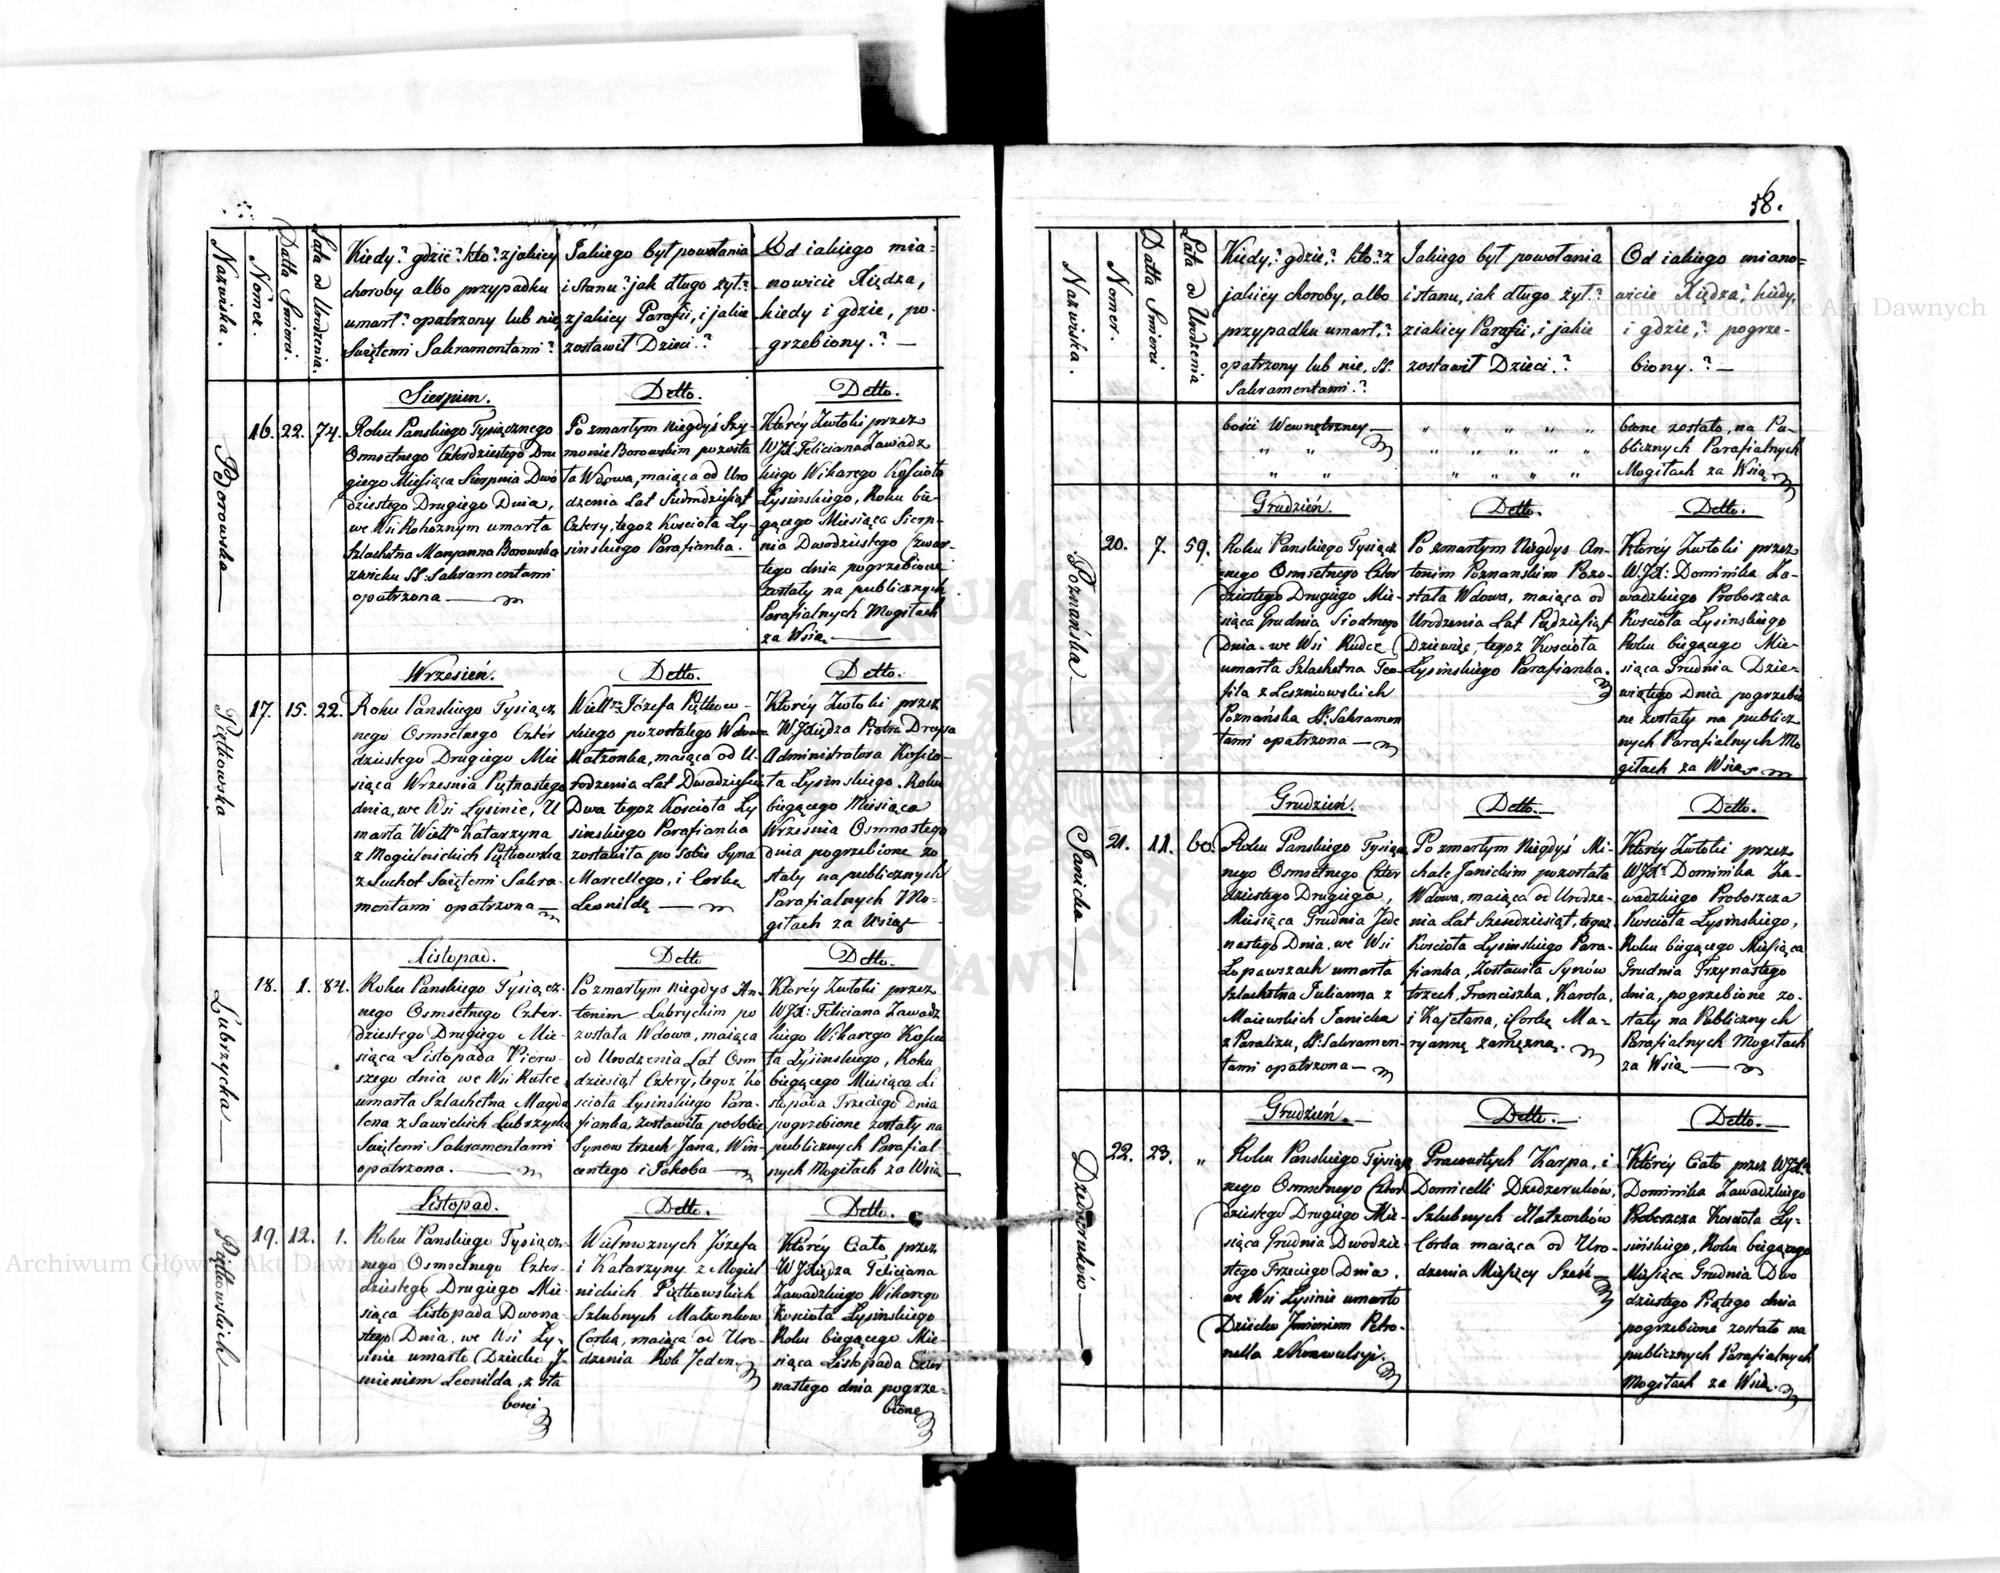 Nazwiska.
Nomer.
Datta Śmierci.
Lata od Urodzenia.
Kiedy? gdzie? kto? z jakiey
choroby albo przypadku
umarł? opatrzony lub nie,
Swiętemi Sakramentami?
Jakiego był powołania
i stanu? jak długo żył?
z jakiey Parafii, i jakie
zostawił Dzieci?
Od iakiego mia=
nowicie Xiędza,
kiedy i gdzie, po-
grzebiony? —
Borowska
16. 22. 74.
Sierpien.
Roku Panskiego Tysiącznego
Osmsetnego Czterdziestego Dru
giego Miesiąca Sierpnia Dwó
dziestego Drugiego Dnia,
we Wsi Rohoznym umarła
Szlachetna Maryanna Borowska
zwieku SS: Sakramentami
opatrzona —
Detto.
Po zmarłym niegdyś Szy-
monie Borowskim pozosta
ła Wdowa, maiąca od Uro
dzenia Lat Siedmdziesiąt
Cztery, tegoż Kościoła Ły-
sińskiego Parafianka.
Detto.
Któréy Zwłoki przez
WJX. Feliciana Zawadz
kiego Wikarego Kościoła
Łysińskiego, Roku bie-
gącego Miesiąca Sierp-
nia Dwodziestego Czwar-
tego dnia pogrzebione
zostały na publicznych
Parafialnych Mogiłach
za Wsią —
Piętkowska
17. 15. 22.
Wrzesień.
Roku Panskiego Tysiącz
nego Osmsetnego Czter
dziestego Drugiego Mie
siąca Wrzesnia Piętnastego
dnia, we Wsi Łysinie, U
marła Wielła Katarzyna
z Mogielnickich Piętkowska
z Suchot Swiętemi Sakra-
mentami opatrzona —
Detto.
Józefa Piętkow-
skiego pozostałego Wdowca
Małżonka, maiąca od U-
rodzenia Lat Dwadzieścia
Dwa tegoż Kościoła Ły
sinskiego Parafianka
zostawiła po Sobie Syna
Marcellego, i Corkę
Leonildę —
Detto.
Któréy Zwłoki przez
WJXiędza Piotra
Administratora Kościo-
ła Łysinskiego. Roku
biegącego Miesiąca
Września Osmnastego
dnia pogrzebione zo
stały na publicznych
Parafialnych Mo-
giłach za Wsią —
Lubrzycka
18. 1. 84.
Listopad.
Roku Panskiego Tysiącz-
nego Osmsetnego Czter-
dziestego Drugiego Mie-
siąca Listopada Pierw-
szego dnia we Wsi Rutce
umarła Szlachetna Magda
lena z Sawickich Lubrzycka
Swiętemi Sakramentami
opatrzona. —
Detto
Po zmarłym niegdys An-
tonim Lubryckim po
została Wdowa, maiąca
od Urodzenia Lat Osm
dziesiąt Cztery, tegoż Ko
scioła Łysinskiego Para-
fianka, zostawiła po Sobie
Synow trzech Jana, Win-
centego i Jakoba —
Detto.
Któréy Zwłoki przez
WJX: Feliciana Zawadz
kiego Wikarego Koscio
ła Łysinskiego, Roku
biegącego Miesiąca Li
stopada Trzeciego Dnia
pogrzebione zostały na
publicznych Parafial-
nych Mogiłach za Wsią —
Piętkowskich
19. 12. 1.
Listopad.
Roku Panskiego Tysiącz-
nego Osmsetnego Czter-
dziestego Drugiego Mie-
siąca Listopada Dwona
stego Dnia, we Wsi Ły-
sinie umarło Dziecko I-
mieniem Leonilda, z sła
bosci
Detto.
Wielmożnych Józefa
i Katarzyny z Mogiel
nickich Piętkowskich
Szlubnych Małżonkow
Corka, maiąca od Uro-
dzenia Rok Jeden.
Detto.
Któréy Ciało przez
WJXiędza Feliciana
Zawadzkiego Wikarego
Koscioła Łysinskiego
Roku biegącego Mie-
siąca Listopada Czter
nastego dnia pogrze-
bione
58.
Nazwiska.
Nomer.
Datta Śmierci
Lata od Urodzenia
Kiedy,? gdzie,? kto? z
jakiey choroby, albo
przypadku umarł,?
opatrzony lub nie, SS.
Sakramentami.?
Jakiego był powołania
i stanu, iak długo żył?
z iakiey Parafii, i jakie
zostawił Dzieci.?
Od iakiego miano=
wicie Xiędza, kiedy,
i gdzie,? pogrze-
biony.? —
bości Wewnętrzney —
bione zostało, na Pu-
blicznych Parafialnych
Mogiłach za Wsią
Poznańska
20. 7. 59.
Grudzień.
Roku Panskiego Tysiącz
nego Osmsetnego Czter
dziestego Drugiego Mie-
siąca Grudnia Siodmego
Dnia we Wsi Rudce
umarła Szlachetna Teo-
fila z Leszniowskich
Poznańska SS: Sakramen
tami opatrzona —
Detto.
Po zmarłym Niegdys An-
tonim Poznanskim Pozo-
stała Wdowa, maiąca od
Urodzenia Lat Pięcdziesiąt
Dziewięc, tegoż Kościoła
Łysinskiego Parafianka.
Detto.
Któréy Zwłoki przez
WJX: Dominika Za-
wadzkiego Proboszcza
Koscioła Łysinskiego
Roku biegącego Mie-
siąca Grudnia Dzie-
wiątego Dnia pogrzebio
ne zostały na publicz
nych Parafialnych Mo
giłach za Wsią —
Janicka
21. 11. 60.
Grudzień.
Roku Panskiego Tysiącz
nego Osmsetnego Czter
dziestego Drugiego,
Miesiąca Grudnia Jede
nastego Dnia, we Wsi
Łopawszach umarła
Szlachetna Julianna z
Maiewskich Janicka
z Paraliżu, SS: Sakramen-
tami opatrzona —
Detto.
Po zmarłym Niegdyś Mi-
chale Janickim pozostała
Wdowa, maiąca od Urodze-
nia Lat Szescdziesiąt, tegoż
Koscioła Łysinskiego Para-
fianka, Zostawiła Synów
trzech, Franciszka, Karola,
i Kajetana, i Corkę Ma-
ryannę zamęzną.
Detto.
Któréy Zwłoki przez
WJX: Dominika Za-
wadzkiego Proboszcza
Koscioła Łysinskiego,
Roku biegącego Miesiąca
Grudnia Trzynastego
dnia, pogrzebione zo-
stały na Publicznych
Parafialnych Mogiłach
za Wsią —
Dzedzerukow
22. 23. „
Grudzień. —
Roku Panskiego Tysiącz
nego Osmsetnego Czter
dziestego Drugiego Mie-
siąca Grudnia Dwodzie
stego Trzeciego Dnia,
we Wsi Łysinie umarło
Dziecko Imieniem Petro-
nella z Konwulsyi.
Detto. —
Pracowitych Karpa, i
Domicelli Dzedzerukow,
Szlubnych Małzonków
Córka maiąca od Uro-
dzenia Miesięcy Sześć —
Detto. —
Któréy Ciało przez WJX:
Dominika Zawadzkiego
Proboszcza Koscioła Ły-
sińskiego, Roku biegącego
Miesiąca Grudnia Dwo
dziestego Piątego dnia
pogrzebione zostało na
publicznych Parafialnych
Mogiłach za Wsią.
Archiwum Główne Akt Dawnych
Archiwum Główne Akt Dawnych